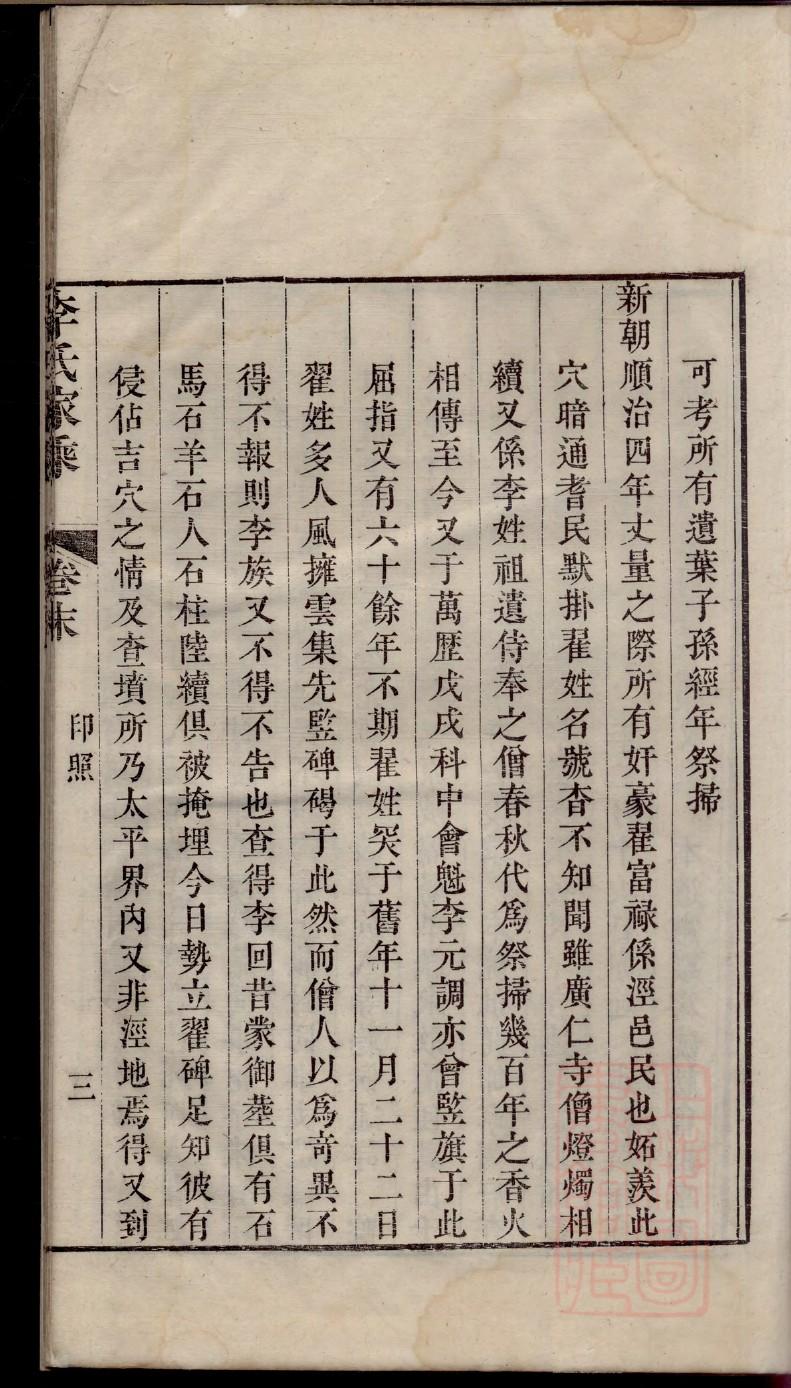 可考所有遺葉子孫經年祭掃
新朝順治四年丈量之際所有奸豪翟富祿係涇邑民也妬羨此
穴暗通耆民默掛翟姓名號杳不知聞雖廣仁寺僧燈燭相
續又係李姓祖遺侍奉之僧春秋代爲祭掃幾百年之香火
相傳至今又于萬歷戊戌科中會魁李元調亦曾竪旗于此
屈指又有六十餘年不期翟姓突于舊年十一月二十二日
翟姓多人風擁雲集先竪碑碣于此然而僧人以爲竒異不
得不報則李族又不得不告也查得李回昔蒙御塟俱有石
馬石羊石人石柱陸續俱被掩埋今日勢立翟碑足知彼有
侵佔吉穴之情及查墳所乃太平界內又非涇地焉得又到
李氏家乘
卷末
印照
三